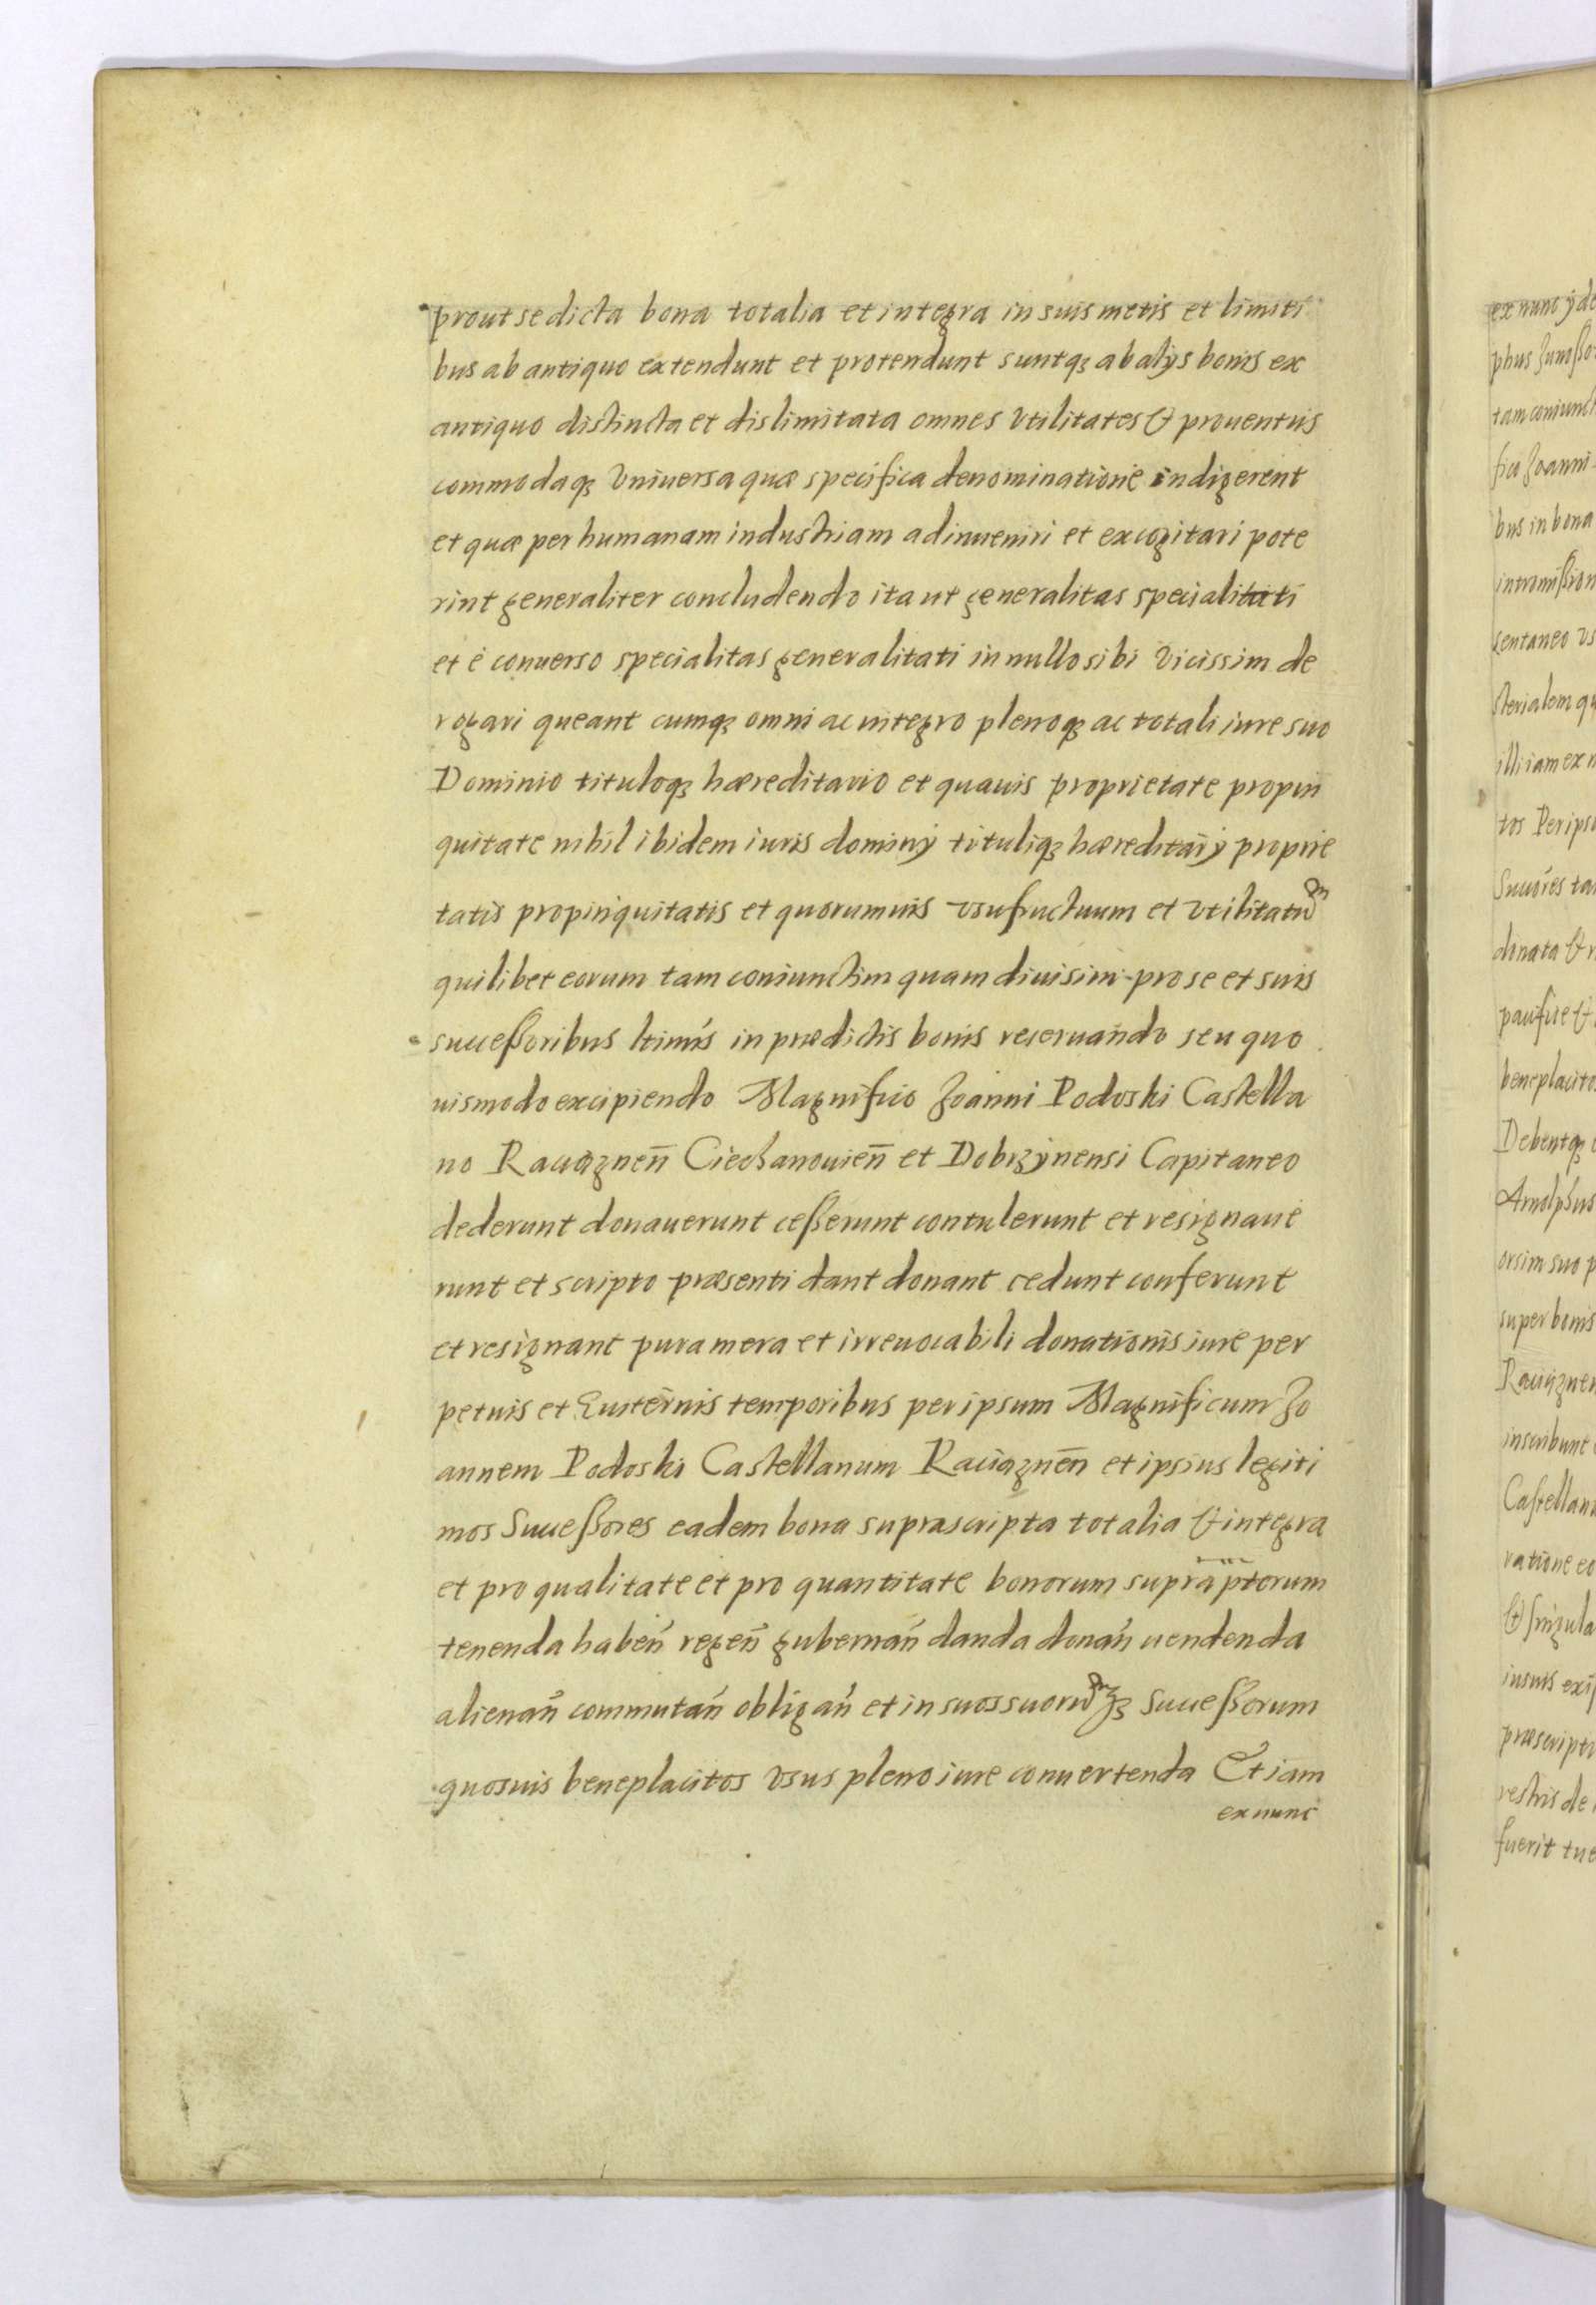 prout se dicta bona totalia et integra in suis metis et limiti
bus ab antiquo extendunt et protendunt suntq₃ ab alys bonis ex
antiquo distincta et dislimitata omnes vtilitates & prouentus
commodaq₃ vniuersa quæ specifica denominatione indigerent
et quæ per humanam industriam adinueniri et excogitari pote
rint generaliter concludendo ita ut generalitas specialitati
et è conuerso specialitas generalitati in nullo sibi vicissim de
rogari queant cumq₃ omni ac integro plenoq₃ ac totali iure suo
Dominio tituloq₃ hæreditario et quauis proprietate propin
quitate nihil ibidem iuris dominÿ tituliq₃ hæreditarÿ proprie
tatis propinquitatis et quorumuis vsufructuum et vtilitatū
quilibet eorum tam coniunctim quam diuisim pro se et suis
successoribus ltimis in prædictis bonis reseruando seu quo
uismodo excipiendo Magnifico Joanni Podoski Castella
no Raciąznen̄ Ciechanouien̄ et Dobrzÿnensi Capitaneo
dederunt donauerunt cesserunt contulerunt et resignaue
runt et scripto præsenti dant donant cedunt conferunt
et resignant pura mera et irreuocabili donationis iure per
petuis et Æuiternis temporibus per ipsum Magnificum Jo
annem Podoski Castellanum Raciąznen̄ et ipsius legiti
mos Successores eadem bona suprascripta totalia & integra
et pro qualitate et pro quantitate bonorum supraptorum
tenenda haben̄ regen̄ gubernan̄ danda donan̄ uendenda
alienan̄ commutan̄ obligan̄ et in suos suorūq₃ Successorum
quosuis beneplacitos vsus pleno iure conuertenda Etiam
ex nunc